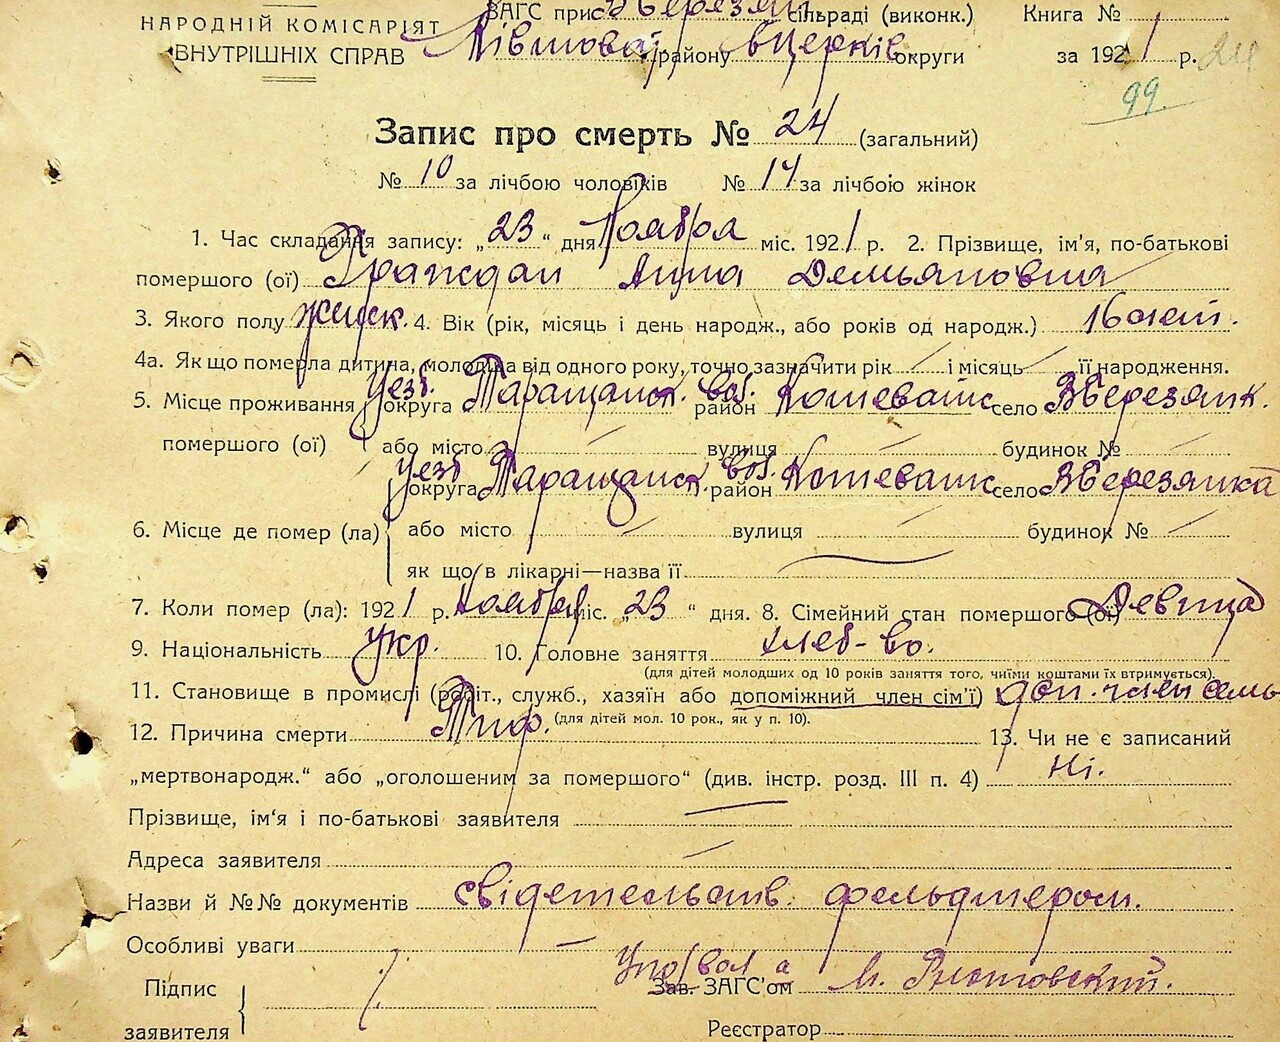 НАРОДНІЙ КОМІСАРІЯТ
ВНУТРІШНІХ СПРАВ
ЗАГС при сільраді (виконк.) Книга №
району Церків округи за 1921 р. 24
99.
Запис про смерть № 24 (загальний)
№ 10 за лічбою чоловіків № 14 за лічбою жінок
1. Час складання запису: „23“ дня Ноября міс. 1921 р. 2. Прізвище, ім'я, по-батькові
помершого (ої) Граждан Анна Демьяновна
3. Якого полу женск. 4. Вік (рік, місяць і день народж., або років од народж.) 16 лет.
4а. Як що померла дитина, молодша від одного року, точно зазначити рік — і місяць — її народження.
5. Місце проживання уезд. округа Таращанск. вол. район Кошеватск село ВБерезянк.
помершого (ої) або місто — вулиця — будинок № —
уезд округа Таращанск. вол. район Кошеватск село ВБерезянка
6. Місце де помер (ла) або місто — вулиця — будинок № —
як що в лікарні—назва її
7. Коли помер (ла): 1921 р. Ноября міс. „23“ дня. 8. Сімейний стан помершого (ої) Девица
9. Національність укр. 10. Головне заняття хлеб-во.
(для дітей молодших од 10 років заняття того, чиїми коштами їх втримується).
11. Становище в промислі (робіт., служб., хазяїн або допоміжний член сім'ї) доп. член семь
(для дітей мол. 10 рок., як у п. 10).
12. Причина смерти Тиф. 13. Чи не є записаний
„мертвонародж.“ або „оголошеним за помершого“ (див. інстр. розд. III п. 4) Ні.
Прізвище, ім'я і по-батькові заявителя —
Адреса заявителя —
Назви й №№ документів свідетельств. фельдшером.
Особливі уваги —
Підпис
заявителя
Зав. ЗАГС'ом М.
Реєстратор